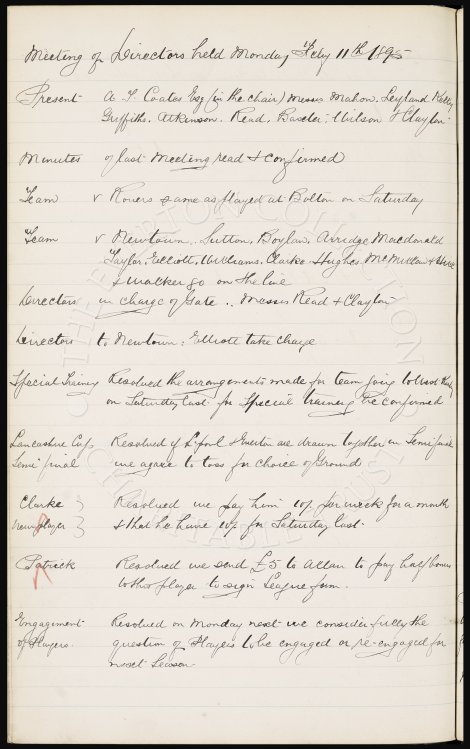 Meeting of Directors held Monday Feby 11th 1895
Present A. T. Coates Esq (in the chair) Messrs Mahon, Leyland Kelly
Griffiths. Atkinson. Read, Baxter, Wilson & Clayton
Minutes of last Meeting read & confirmed
Team v Rovers same as played at Bolton on Saturday
Team v Newtown. Sutton, Boylan, Arridge Macdonald
Taylor, Elliott, Williams, Clarke Hughes McMillan &
& Walker go on the line
Directors in charge of Gate .. Messrs Read & Clayton
Directors to Newtown: Elliott take charge
Special Training Resolved the arrangements made for team going to
on Saturday last for Special training be confirmed
Lancashire Cup Resolved if L'pool & Everton are drawn together in Semi final
Semi final we agree to toss for choice of Ground
Clarke } Resolved we pay him 10/- per week for a month
new player } & that he have 10/- for Saturday last.
Patrick Resolved we send £5 to Allan to pay half bonus
to this player to sign League form.
Engagement Resolved on Monday next we consider fully the
of Players. question of Players to be engaged or re-engaged for
next Season